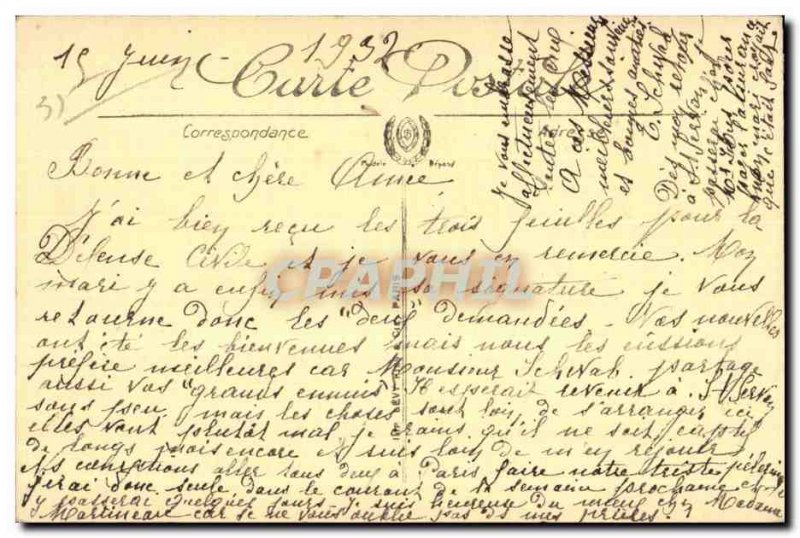 15 Juin 1932
Carte Postale
Correspondance
Adresse
Bonne et chère Anne
J'ai bien reçu les trois feuilles pour la
Défense Civile et je vous en remercie. Mon
mari y a enfin mis sa signature je vous
retourne donc les "deux" demandées. Vos nouvelles
ont été les bienvenues mais nous les eussions
préféré meilleures car Monsieur Schwab partage
aussi vos "grands ennuis" Il espérait revenir à St Servan
sous peu, mais les choses sont loin de s'arranger ici
elles vont plutôt mal je crains qu'il ne soit
de longs mois encore et suis loin de m'en réjouir
Ns comptions aller tous deux à Paris faire notre triste
ferai donc seule dans le courant de la semaine prochaine et
y passerai quelques jours je suis heureuse du mieux chez Madame
Martineau car je ne vous oublie pas ds mes prières.
Je vous embrasse
affectueusement
toutes les
A ces Messieurs
meilleurs souvenirs
et bonnes amitiés
E. Schwab
Dès mon retour
à St Servan je
passerai chez
mon mari croyait
que c'était fait
CPARHIL
LEVY PARIS